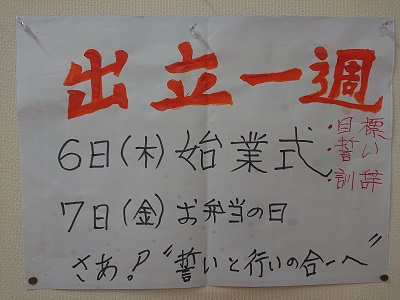 出立一週
6日(木)始業式
・目標
・誓い
・訓辞
7日(金)お弁当の日
さあ!"誓いと行いの合一へ"